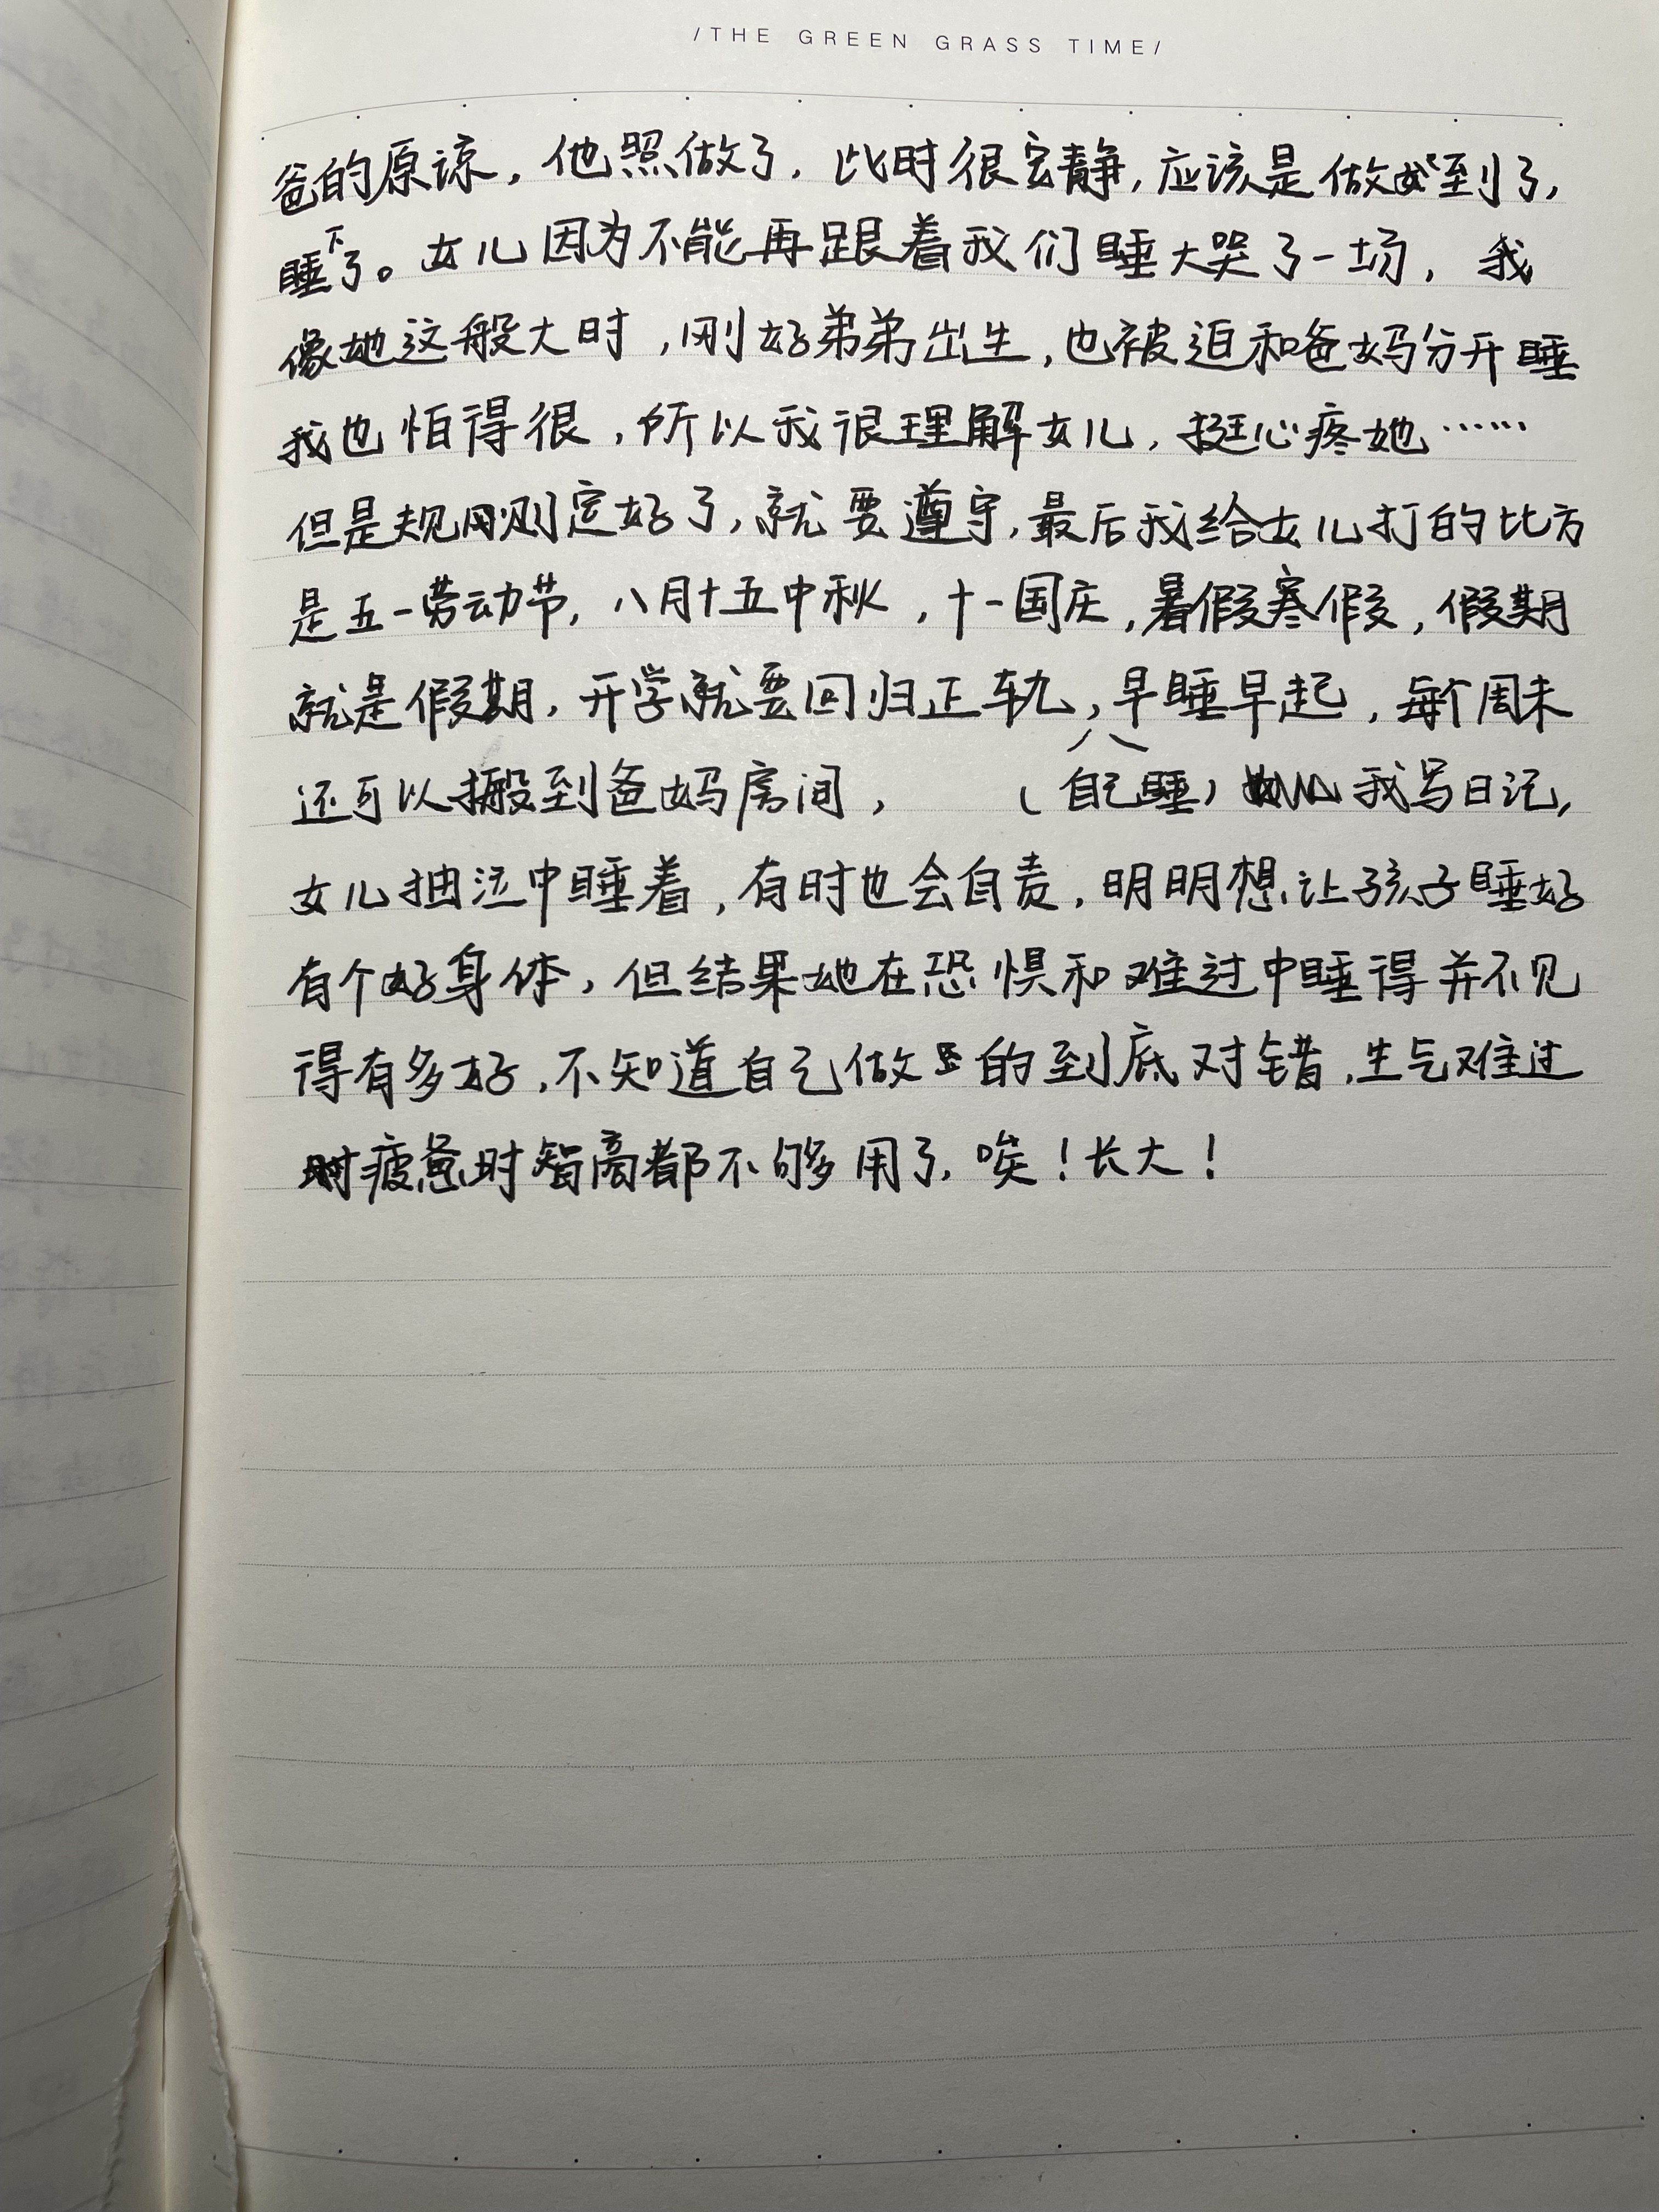 /THE GREEN GRASS TIME/
爸的原谅，他照做了，此时很安静，应该是做到了，
睡下了。女儿因为不能再跟着我们睡大哭了一场，我
像她这般大时，刚好弟弟出生，也被迫和爸妈分开睡
我也怕得很，所以我很理解女儿，挺心疼她……
但是规则定好了，就要遵守，最后我给女儿打的比方
是五一劳动节，八月十五中秋，十一国庆，暑假寒假，假期
就是假期，开学就要回归正轨，早睡早起，每个周末
还可以搬到爸妈房间，（自己睡）我写日记，
女儿抽泣中睡着，有时也会自责，明明想让孩子睡好
有个好身体，但结果她在恐惧和难过中睡得并不见
得有多好，不知道自己做的到底对错，生气难过
时疲惫时智商都不够用了，唉！长大！